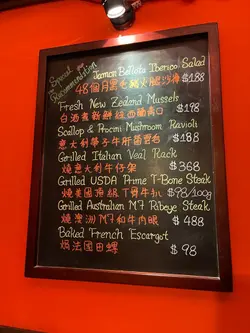 Special Recommendation
Jamon Bellota Iberico Salad
48個月黑毛豬火腿沙律 $188
Fresh New Zealand Mussels
白酒煮新鮮紐西蘭青口 $198
Scallop & Procini Mushroom Ravioli
意大利帶子牛肝菌雲吞 $188
Grilled Italian Veal Rack
燒意大利牛仔架 $368
Grilled USDA Prime T-Bone Steak
燒美國頂級T骨牛扒 $98/100g
Grilled Australian M7 Ribeye Steak
燒澳洲M7和牛肉眼 $488
Baked French Escargot
焗法國田螺 $98